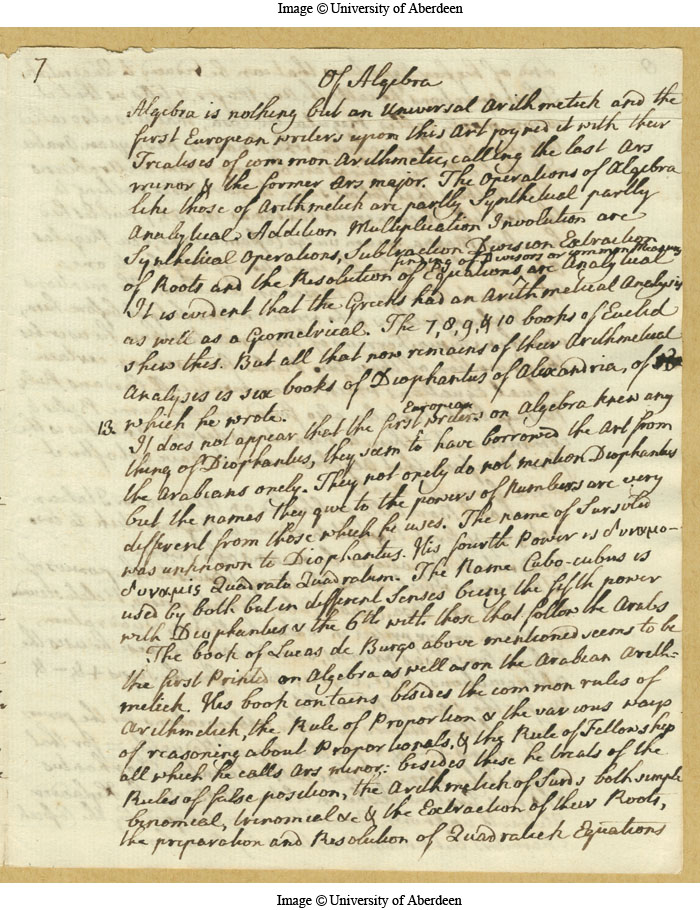 Image © University of Aberdeen
7
Of Algebra
Algebra is nothing but an Universal Arithmetick and the
first European writers upon this Art joyned it with their
Treatises of common Arithmetic, calling the last Ars
minor & the former Ars major. The Operations of Algebra
like those of Arithmetick are partly Synthetical partly
Analytical. Addition Multiplication Involution are
Synthetical Operations, Subtraction Division Extraction
finding of Divisors or common Measures
of Roots and the Resolution of Equations, are Analytical
It is evident that the Greeks had an Arithmetical Analysis
as well as a Geometrical. The 7, 8, 9, & 10 books of Euclid
shew this. But all that now remains of their Arithmetical
Analysis is six books of Diophantus of Alexandria, of
13. which he wrote.
European
It does not appear that the first writers on Algebra knew any
thing of Diophantus, they seem to have borrowed the Art from
the Arabians onely. They not onely do not mention Diophantus
but the names they give to the powers of Numbers are very
different from those which he uses. The name of Sursolid
was unknown to Diophantus. His fourth Power is δυναμο-
δυναμις Quadrato Quadratum. The Name Cubo-cubus is
used by both but in different Senses being the fifth power
with Diophantus & the 6th with those that follow the Arabs
The book of Lucas de Burgo above mentioned seems to be
the first Printed on Algebra as well as on the Arabian Arith=
metick. His book contains besides the common rules of
Arithmetick, the Rule of Proportion & the various ways
of reasoning about Proportionals, & the Rule of Fellowship
all which he calls Ars minor; besides these he treats of the
Rules of false position, the Arithmetick of Surds both simple
binomial, trinomial &c & the Extraction of their Roots,
the preparation and Resolution of Quadratick Equations
Image © University of Aberdeen